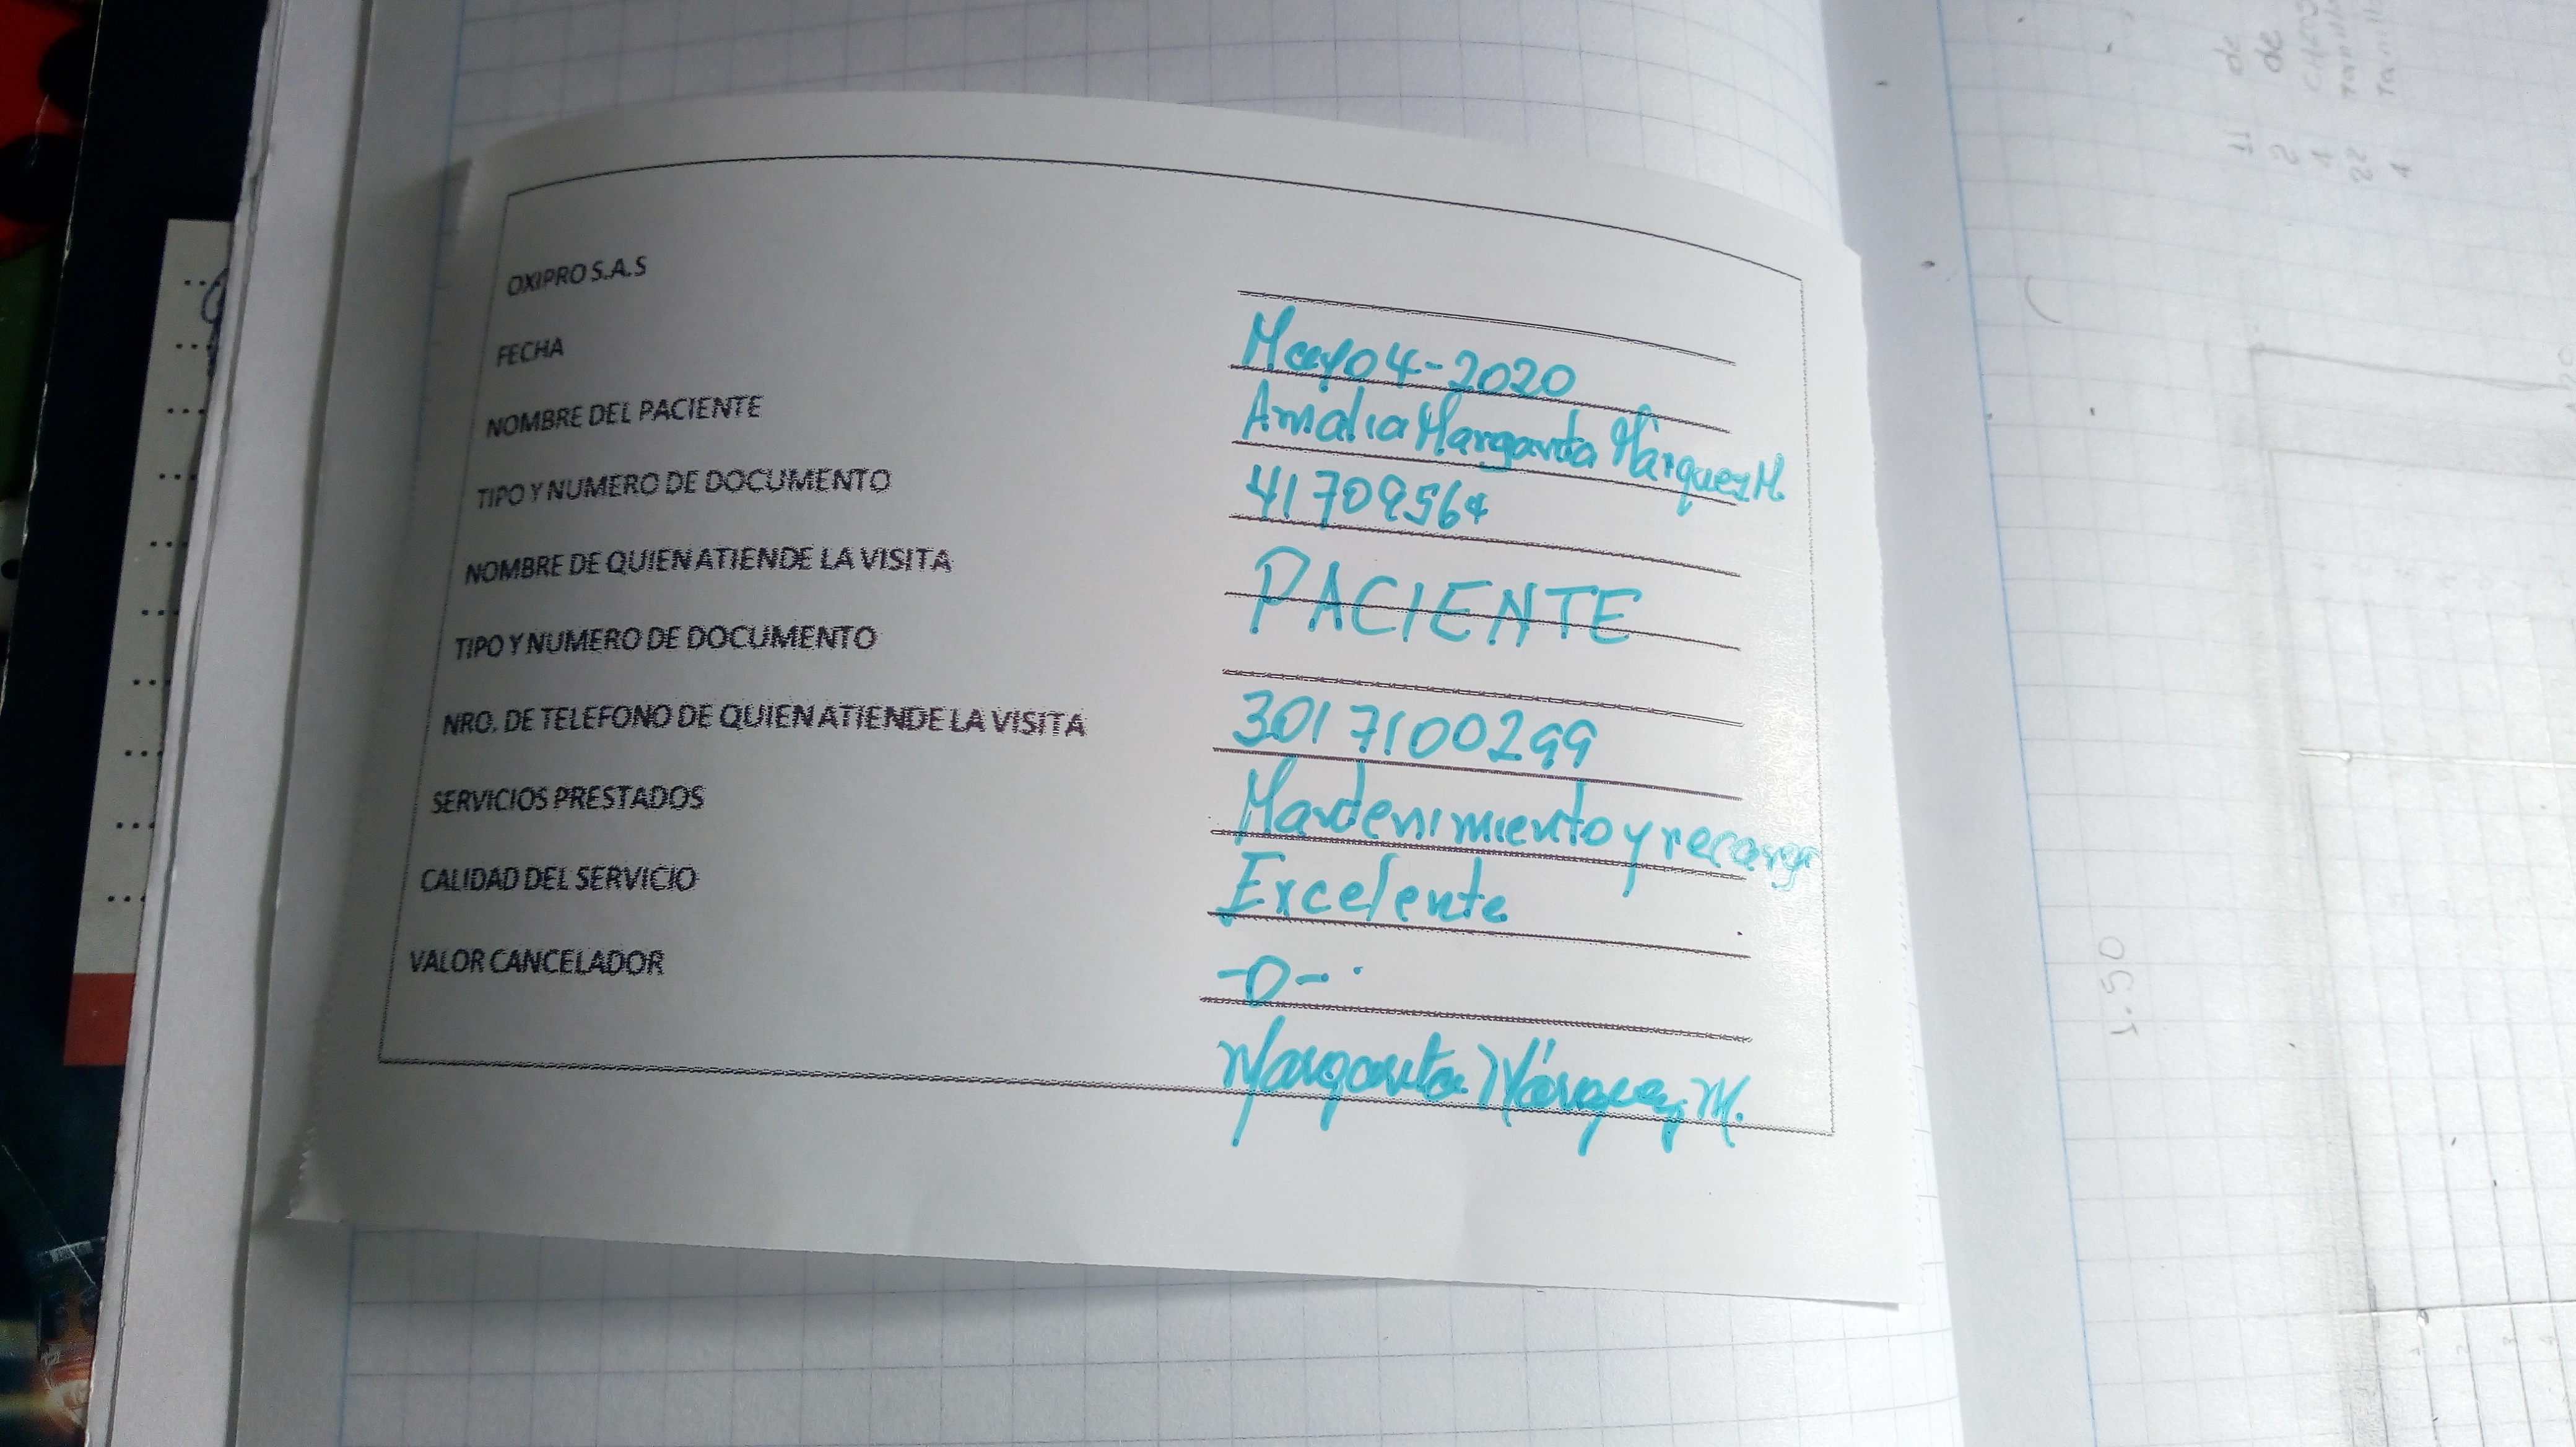 OXIPRO S.A.S
FECHA Mayo 4-2020
NOMBRE DEL PACIENTE Amalia Margarita Márquez M.
TIPO Y NUMERO DE DOCUMENTO 41709564
NOMBRE DE QUIEN ATIENDE LA VISITA PACIENTE
TIPO Y NUMERO DE DOCUMENTO
NRO. DE TELEFONO DE QUIEN ATIENDE LA VISITA 3017100299
SERVICIOS PRESTADOS Mantenimiento y recarga
CALIDAD DEL SERVICIO Excelente
VALOR CANCELADOR -0-
Margarita Márquez M.
11 de
2 de
4
22
4
1.50